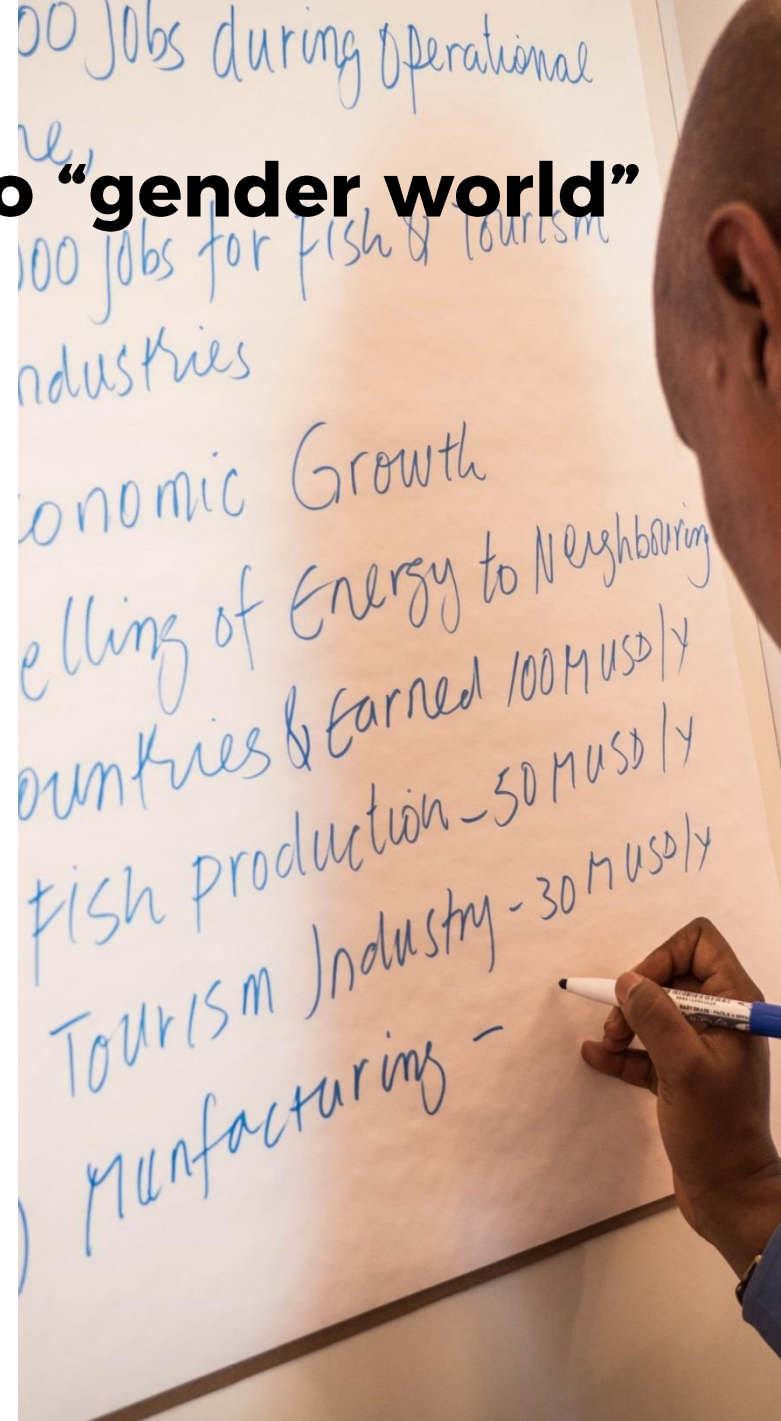 00 Jobs during operational
ne,
o “gender world”
000 jobs for Fish & Tourism
ndustries
onomic Growth
elling of Energy to Neighbouring
ountries & Earned 100M USD/y
Fish production - 50 M USD/y
Tourism Industry - 30 M USD/y
) Munfacturing -